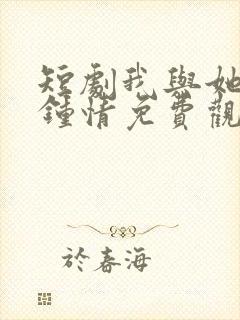 短劇我與她
鍾情免費觀
於春海